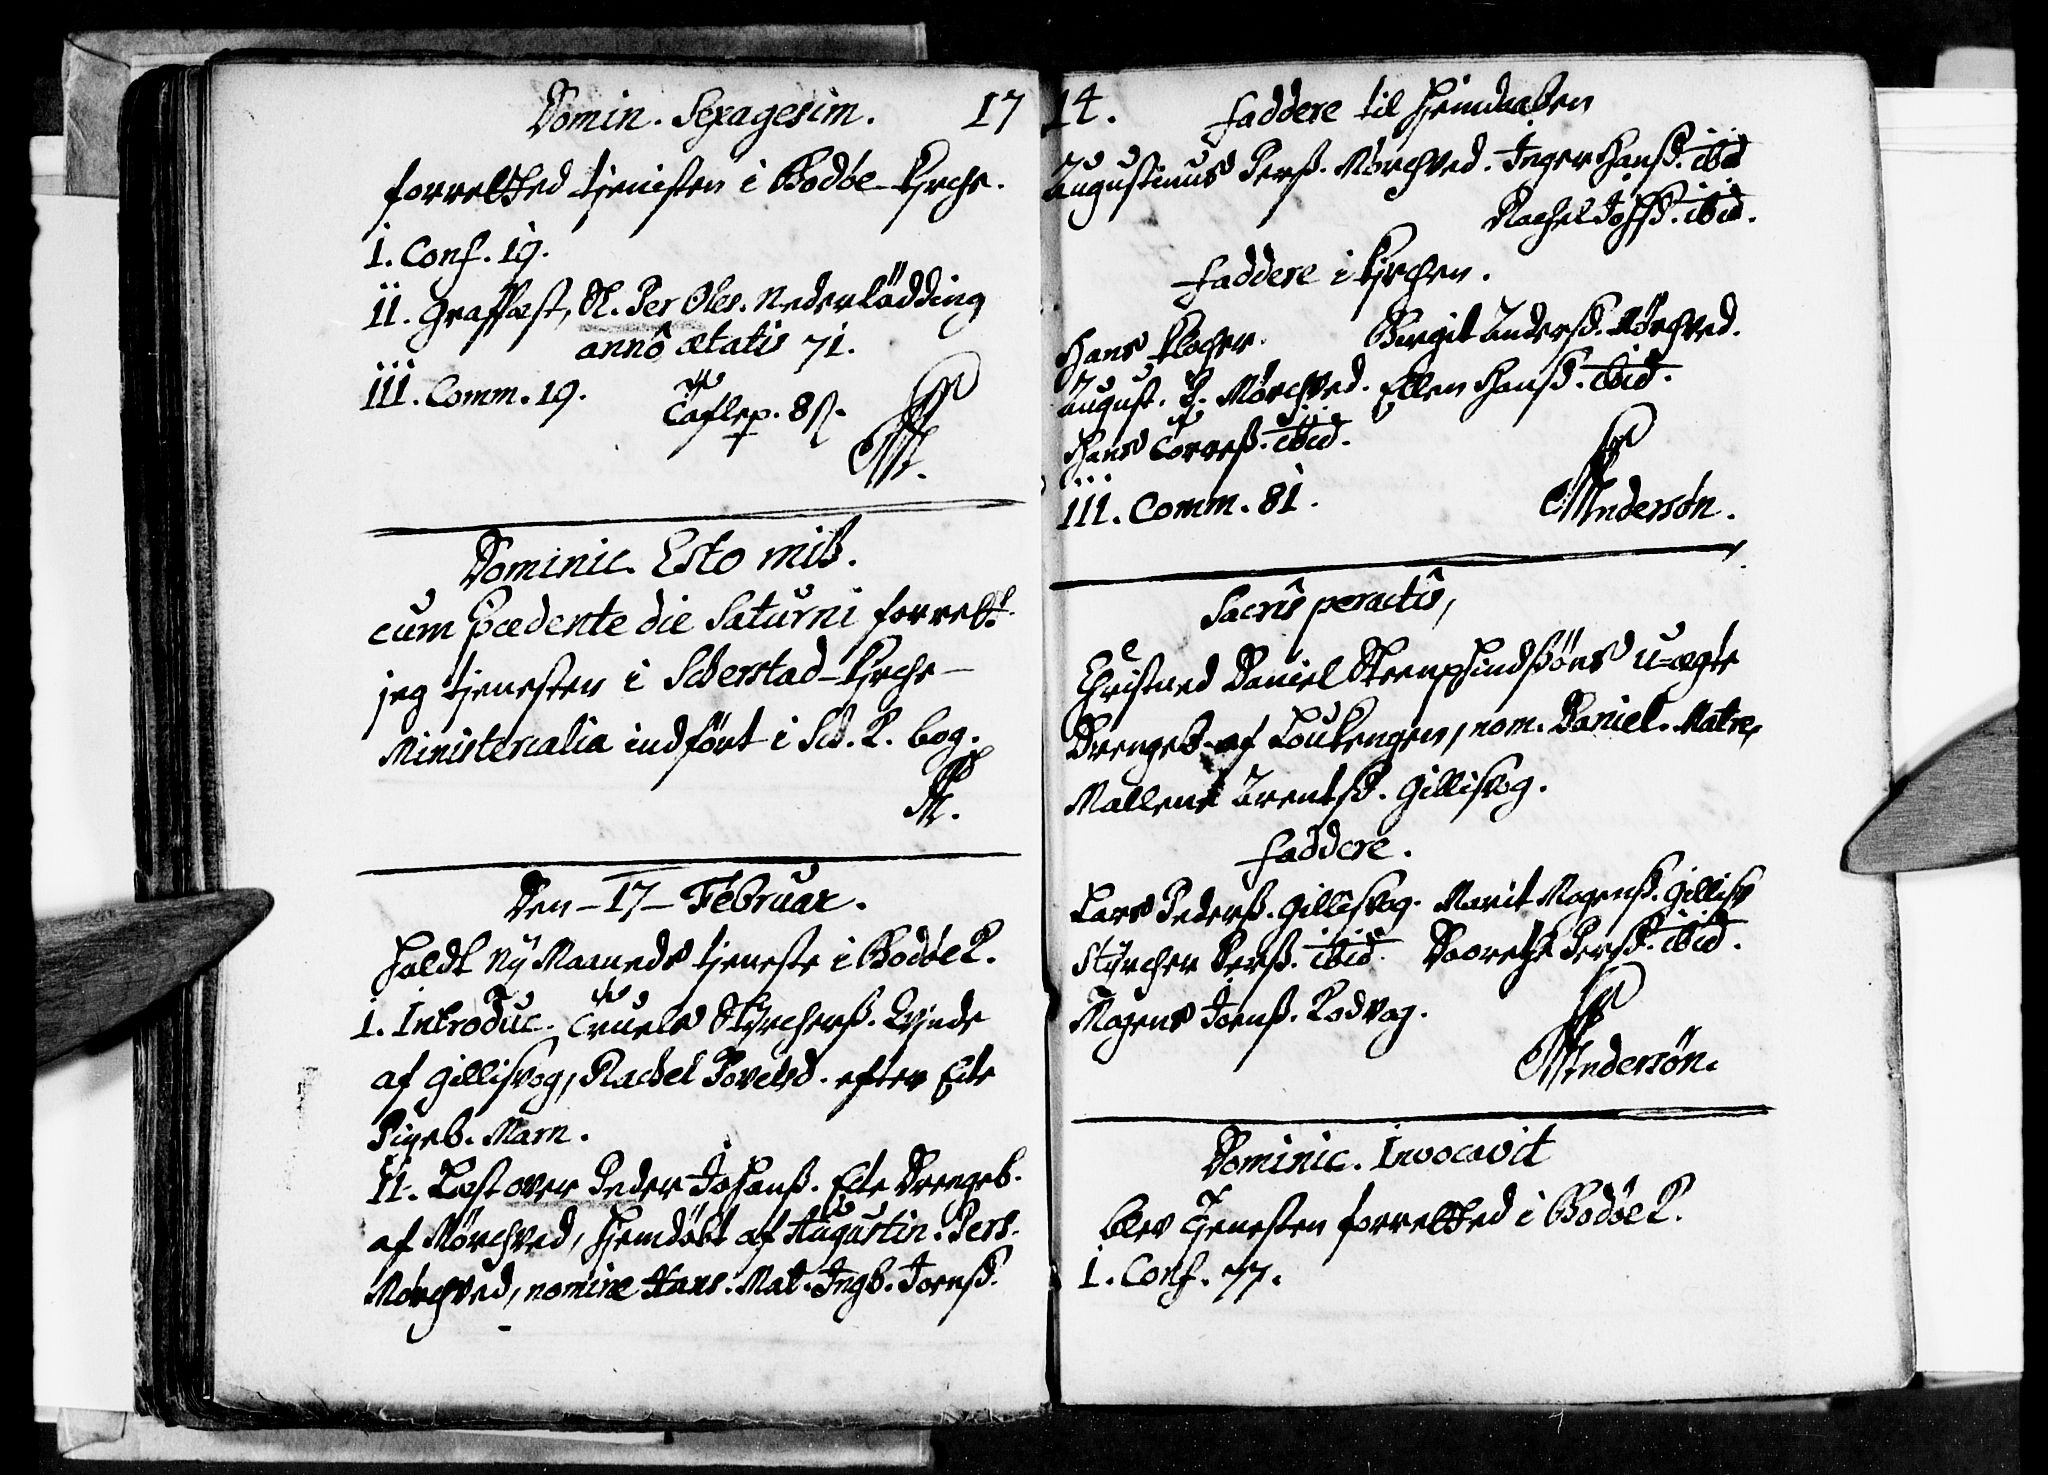 Domin. Sexagesim. 17
forretted tjenisten i Bodöe-Kirche.
I. Conf. 19.
II. Graffæst, Sl. Per Oles. Nederlödding
annô ætatis 71.
III. Comm. 19.
Taflep. 8ß.
Dominic. Esto mih.
cum præcedente die Saturni forrett.
jeg tjenesten i Scherstad-Kirche-
Ministerialia indfört i Sch. K. bog.
Den 17 Februar.
Holdt Ny Maaneds tjeneste i Bodöe K.
I. Introduc. Truels Styrcherß. Qvinde
af Gillisvog, Rachel Povelsd. efter Ecte
Pigeb. Marn.
II. Læst over Peder Johanß. Ecte Drengeb.
af Mörchved, hjemdöbt af Augustin. Pers.
Mörchved, nomine Hans. Mat. Ingb. Joensd.
14. Faddere til Hiemdaaben
Augustinus Perß. Mörchved. Inger Hansd. ibid
Rachel Johsd. ibid.
Faddere i Kirchen.
Hans Klocher. Birgit Andersd. Mörchved.
August. P. Mörchved. Ellen Hansd. ibid.
Hans Torreß. ibid.
III. Comm. 81.
Andersön.
Sacris peractis,
Christned Daniel Steenhindßöns u-ægte
Drengeb. af Loukengen, nom. Daniel. Matre,
Mallene Arentsd. Gillisvog.
Faddere.
Lars Pederß. Gillisvog. Marit Mogensd. Gillisv
Styrcher Perß. ibid. Dorethe Persd. ibid.
Mogens Joenß. Kodvog.
Andersön.
Dominic. Invocavit
blev Tjenesten forretted i Bodöe K.
I. Conf. 77.